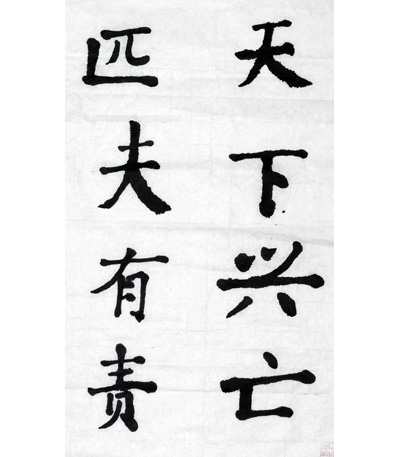 天下兴亡
匹夫有责